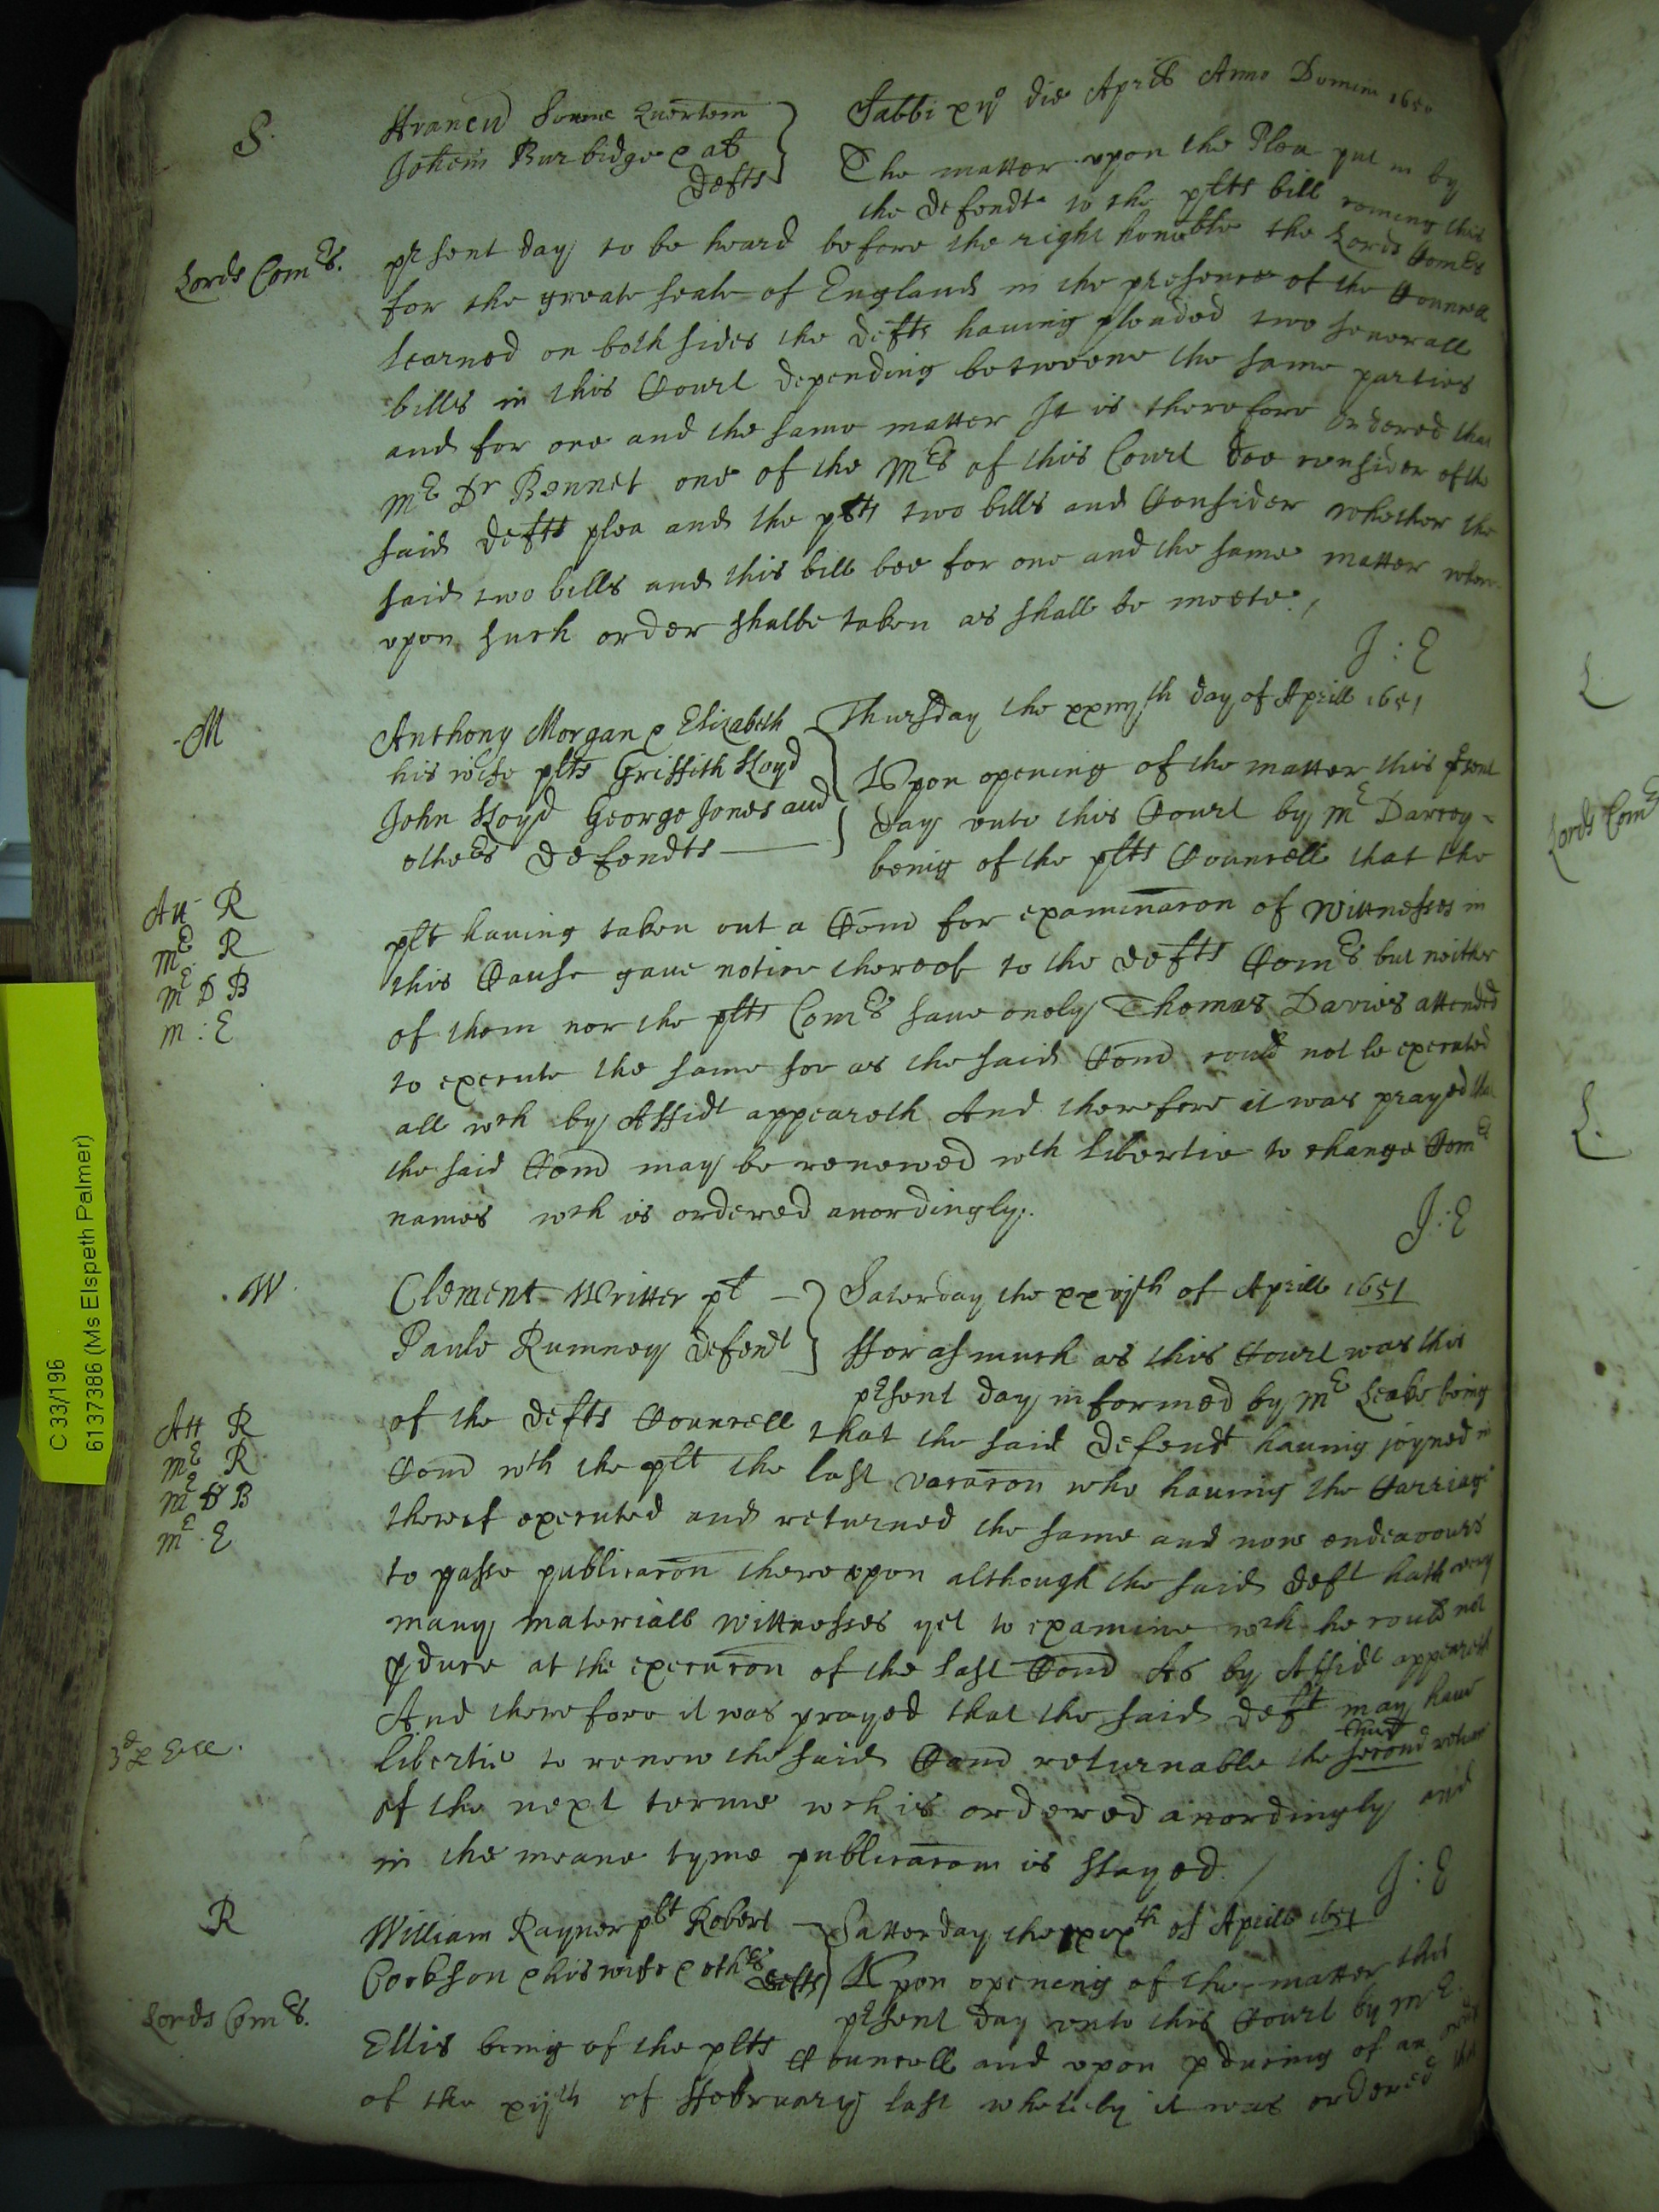 S.
Sabbi xij° die Aprilis Anno Domini 1651
ffrancu Quertem
Johem Burbidge e al
Defts
The matter upon the Plea put in by
the Defendts to the plts bill coming this
Lords Comrs.
prsent day to be heard before the right honoble the Lords Comrs
for the greate seale of England in the presence of the Councell
learned on both sides the Defts having pleaded two severall
bills in this Court depending betweene the same parties
and for one and the same matter It is therefore ordered that
Mr Dr Bennet one of the Mrs of this Court doe consider of the
said Defts plea and the plts two bills and Consider whether the
said two bills and this bill bee for one and the same matter where
upon such order shalbe taken as shall be meete
J : E
M
Anthony Morgan e Elizabeth
his wife plts Griffith Lloyd
John Lloyd George Jones and
others Defendts
Thursday the xxiiijth day of Aprill 1651
Upon opening of the matter this prsent
day unto this Court by Mr Darcey
being of the plts Councell that the
Att R
Mr R
Mr D B
M : E
plt having taken out a Comn for examinacon of Wittnesses in
this Cause gave notice thereof to the defts Comrs but neither
of them nor the plts Comrs save onely Thomas Davies attended
to execute the same soe as the said Comn could not be executed
all wch by Affidt appeareth And therefore it was prayed that
the said Comn may be renewed wth libertie to change Comrs
names wch is ordered accordingly.
J : E
W
Clement Writter plt
Paule Rumney Defendt
Saterday the xxvjth of Aprill 1651
fforasmuch as this Court was this
prsent day informed by Mr Leake being
Att R
Mr R
Mr D B
Mr E
of the Defts Councell that the said Defendt having joyned in
Comn wth the plt the last vacacon who having the Carriage
thereof executed and returned the same and now endeavours
to passe publicacon thereupon although the said Deft hath very
many materiall wittnesses yet to examine wch he could not
pduce at the execucon of the last Comn As by Affidt appeareth
And therefore it was prayed that the said deft may have
third
3d R Ease.
libertie to renew the said Comn returnable the second retorne
of the next terme wch is ordered accordingly and
in the meane tyme publicacon is stayed.
J : E
R
William Rayner plt Robert
Cookson e his wife e othrs Defts
Satterday the xixth of Aprill 1651
Upon opening of the matter this
prsent day unto this Court by Mr
Lords Comrs.
Ellis being of the plts Councell and upon pduceing of an order
of the xijth of ffebruary last whereby it was ordered that
C 33/196
61373786 (Ms Elspeth Palmer)
L
Lords Comrs
L.